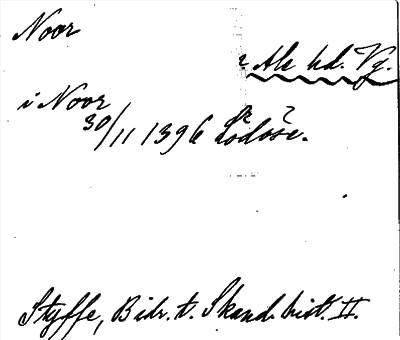 Noor
? Ale hd. Vg.
i Noor
30/11 1396 Lödöse.
Styffe, Bidr. t. Skand. hist. II.